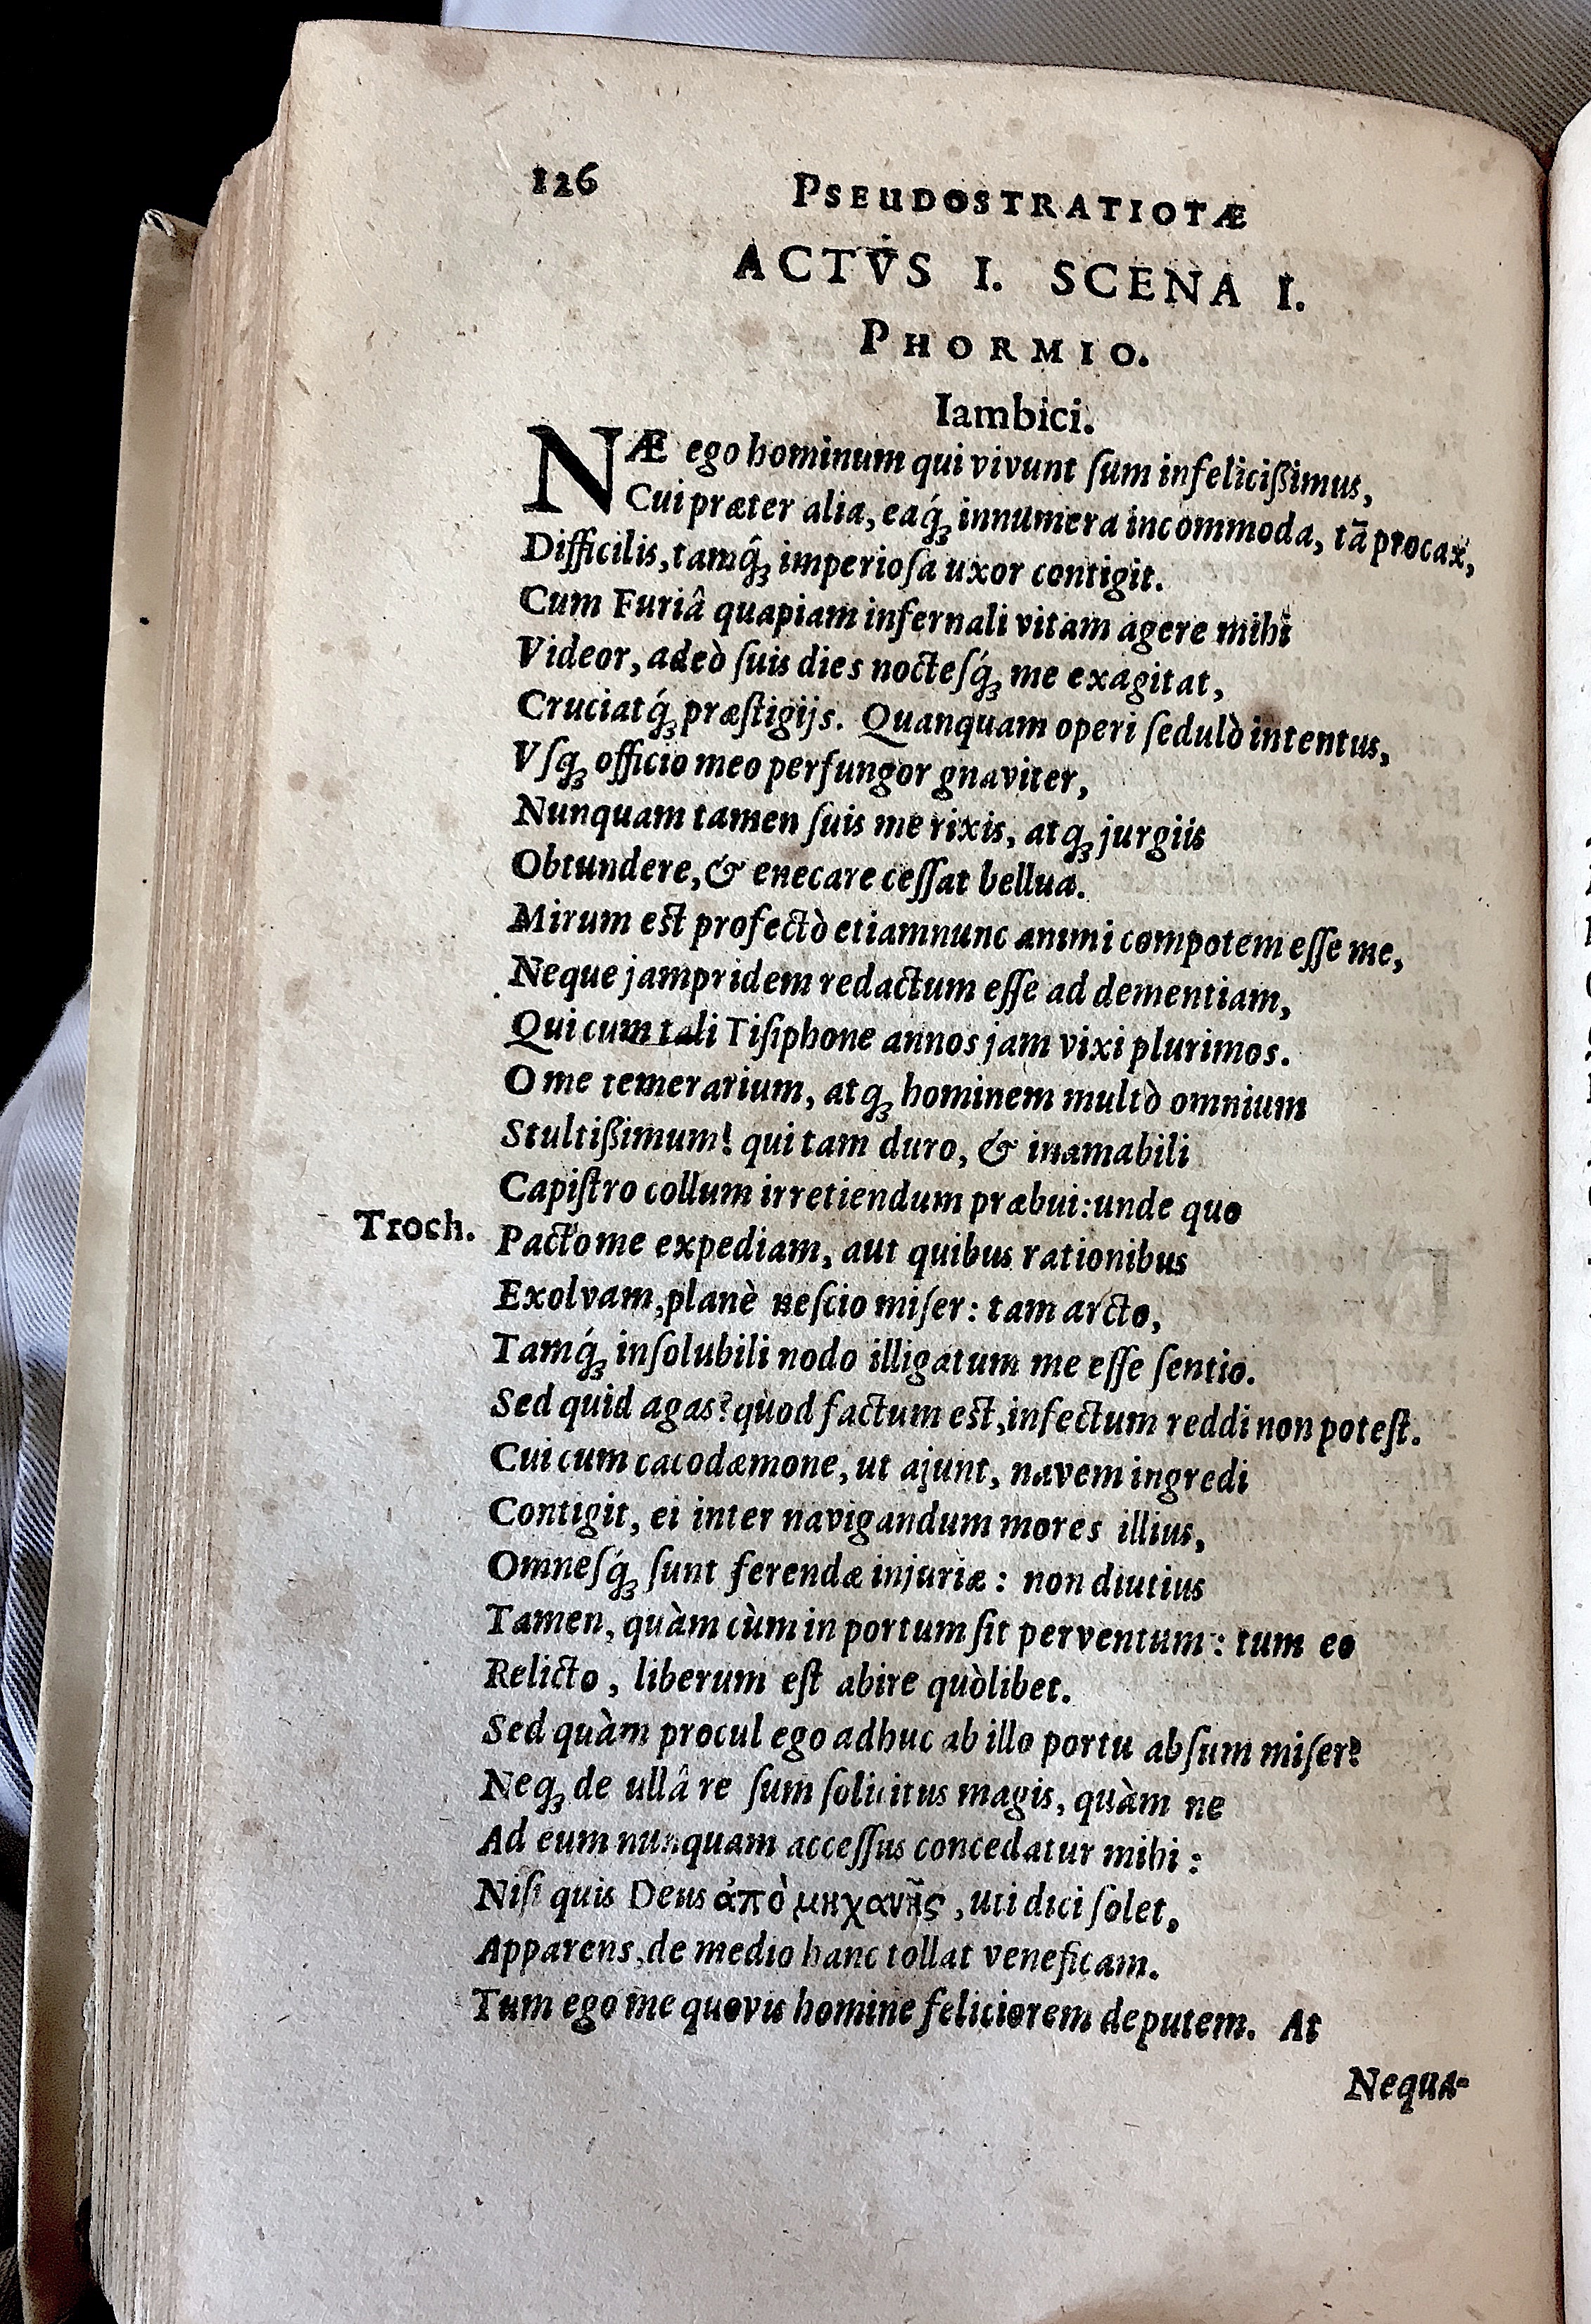 126 PSEUDOSTRATIOTÆ
ACTVS I. SCENA I.
PHORMIO.
Iambici.
NÆ ego hominum qui vivunt ſum infelicißimus,
Cui præter alia, eaq́ꝫ innumera incommoda, tã procax,
Difficilis, tamq́ꝫ imperioſa uxor contigit.
Cum Furiâ quapiam infernali vitam agere mihi
Videor, adeò ſuis dies nocteſq́ꝫ me exagitat,
Cruciatq́ꝫ præſtigijs. Quanquam operi ſedulò intentus,
Vſqꝫ officio meo perfungor gnaviter,
Nunquam tamen ſuis me rixis, atqꝫ jurgiis
Obtundere, & enecare ceſſat bellua.
Mirum est profectò etiamnunc animi compotem eſſe me,
Neque jampridem redactum eſſe ad dementiam,
Qui cum tali Tiſiphone annos jam vixi plurimos.
O me temerarium, atqꝫ hominem multò omnium
Stultißimum! qui tam duro, & inamabili
Capiſtro collum irretiendum præbui: unde quo
Troch. Pacto me expediam, aut quibus rationibus
Exolvam, planè neſcio miſer: tam arcto,
Tamq́ꝫ inſolubili nodo illigatum me eſſe ſentio.
Sed quid agas? quod factum est, infectum reddi non poteſt.
Cui cum cacodæmone, ut ajunt, navem ingredi
Contigit, ei inter navigandum mores illius,
Omneſq́ꝫ ſunt ferendæ injuriæ: non diutius
Tamen, quàm cùm in portum ſit perventum: tum eo
Relicto, liberum eſt abire quòlibet.
Sed quàm procul ego adhuc ab illo portu abſum miſer?
Neqꝫ de ullâ re ſum ſolicitus magis, quàm ne
Ad eum nunquam acceſſus concedatur mihi:
Niſi quis Deus ἀπὸ μηχανῆς, uti dici ſolet,
Apparens, de medio hanc tollat veneficam.
Tum ego me quovis homine feliciorem deputem. At
Nequa-